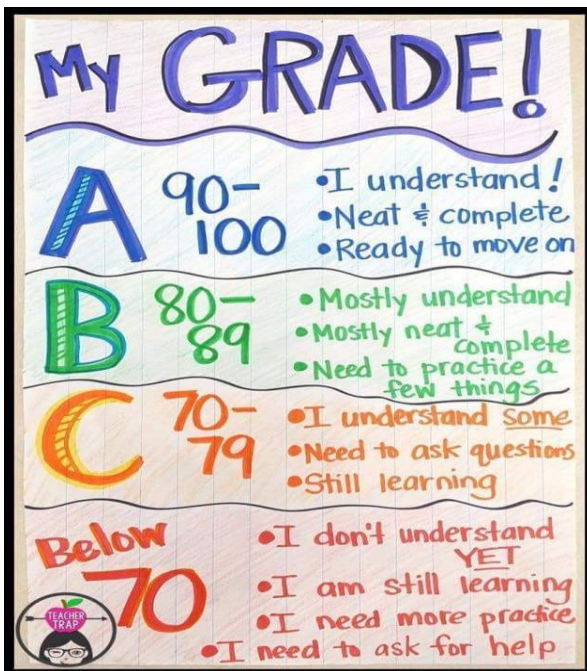 My GRADE!
A 90-
100
• I understand!
• Neat & complete
• Ready to move on
B 80-
89
• Mostly understand
• Mostly neat &
complete
• Need to practice a
few things
C 70-
79
• I understand some
• Need to ask questions
• Still learning
Below
70
• I don't understand
YET
• I am still learning
• I need more practice
• I need to ask for help
TEACHER
TRAP